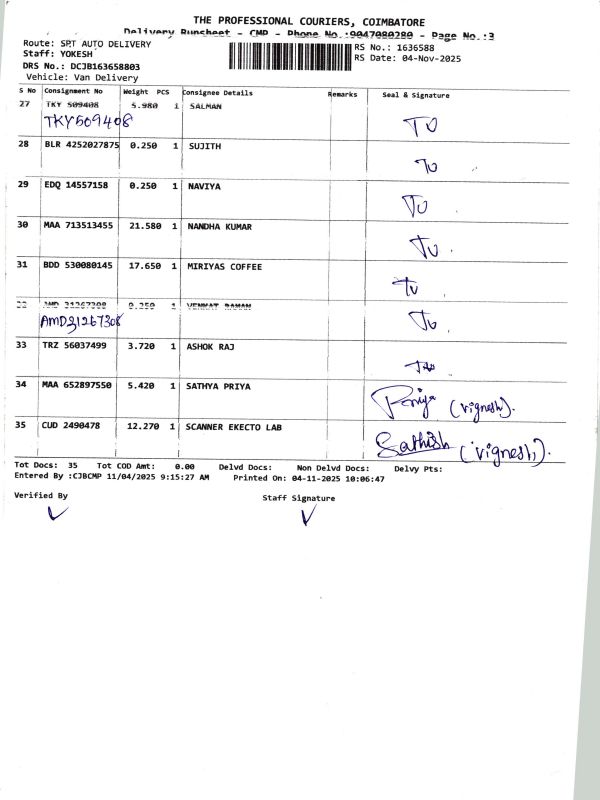 THE PROFESSIONAL COURIERS, COIMBATORE
Delivery Runsheet - CMP - Phone No.:9047080280 - Page No.:3
Route: SPT AUTO DELIVERY
Staff: YOKESH
DRS No.: DCJB163658803
Vehicle: Van Delivery
RS No.: 1636588
RS Date: 04-Nov-2025
S No Consignment No Weight PCS Consignee Details Remarks Seal & Signature
27 TKY 509408 5.980 1 SALMAN
TKY509408 TU
28 BLR 4252027875 0.250 1 SUJITH
TU
29 EDQ 14557158 0.250 1 NAVIYA
TU
30 MAA 713513455 21.580 1 NANDHA KUMAR
TU
31 BDD 530080145 17.650 1 MIRIYAS COFFEE
TU
32 AMD 31267308 0.250 1 VENKAT RAMAN
AMD31267308 TU
33 TRZ 56037499 3.720 1 ASHOK RAJ
34 MAA 652897550 5.420 1 SATHYA PRIYA
Priya (vignesh).
35 CUD 2490478 12.270 1 SCANNER EKECTO LAB
Sathish (vignesh).
Tot Docs: 35 Tot COD Amt: 0.00 Delvd Docs: Non Delvd Docs: Delvy Pts:
Entered By :CJBCMP 11/04/2025 9:15:27 AM Printed On: 04-11-2025 10:06:47
Verified By Staff Signature